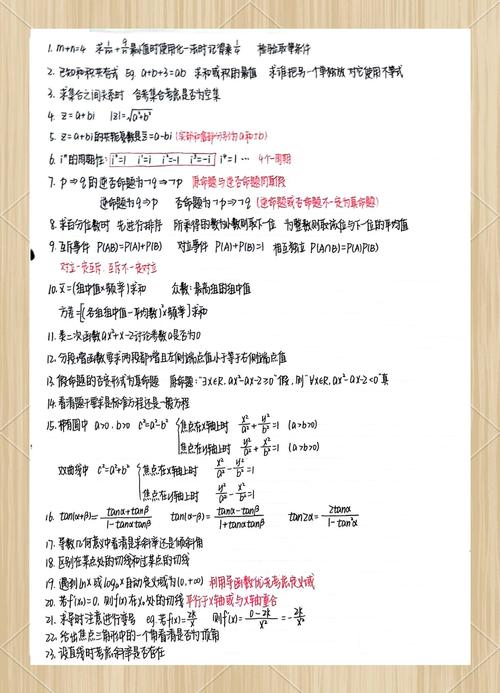 1. m+n=4 求1/m+9/n最小值时使用化一法时记得乘1/4 检验取等条件
2. 已知和积共存式 Eg. a+b+3=ab 求和或积的最值 求谁把另一个单独放 对它使用不等式
3. 求集合之间关系时 合考集合考虑是否为空集
4. z=a+bi |z|=√(a²+b²)
5. z=a+bi的共轭复数是z̄=a-bi (实部和虚部分别为a和±b)
6. iⁿ的周期性: i⁰=1 i¹=i i²=-1 i³=-i i⁴=1 … 4个一周期
7. p⇒q的逆否命题为¬q⇒¬p 原命题与逆否命题同真假
逆命题为q⇒p 否命题为¬p⇒¬q (逆命题或否命题不一定为真命题)
8. 求百分位数时 先进行排序 所求得的数为小数则取下一位 为整数则取该位与下一位的平均值
9. 互斥事件 P(AB)=P(A)+P(B) 对立事件 P(A)+P(B)=1 相互独立 P(A∩B)=P(A)P(B)
对立一定互斥, 互斥不一定对立
10. x̄=(组中值×频率)求和 众数: 最高组的组中值
方差=[(各组组中值-平均数)²×频率]求和
11. 类二次函数ax²+x-2讨论参数a是否为0
12. 分段增函数要求两段都增且左侧端点值小于等于右侧端点值
13. 假命题的否定形式为真命题 原命题:"∃x∈R, ax²-ax-2≥0"假, 则"∀x∈R, ax²-ax-2<0"真
14. 看清题干要求是标准方程还是一般方程
15. 椭圆中 a>0, b>0 c²=a²-b² 焦点在x轴上时 x²/a²+y²/b²=1 (a>b>0)
焦点在y轴上时 y²/a²+x²/b²=1 (a>b>0)
双曲线中 c²=a²+b² 焦点在x轴上时 x²/a²-y²/b²=1
焦点在y轴上时 y²/a²-x²/b²=1
16. tan(α+β)=(tanα+tanβ)/(1-tanαtanβ) tan(α-β)=(tanα-tanβ)/(1+tanαtanβ) tan2α=2tanα/(1-tan²α)
17. 导数几何意义中看清是求斜率还是倾斜角
18. 区别在某点处的切线和过某点的切线
19. 遇到lnx或logₐx自动定义域为(0,+∞) 利用导函数优先考虑定义域
20. 若f'(x₀)=0, 则f(x)在x₀处的切线平行于x轴或与x轴重合
21. 求导时注意进行变号 eg. 若f(x)=2k/x 则f'(x)=(0-2k)/x²=-2k/x²
22. 给出焦点三角形中的一个角看清是否为顶角
23. 设直线时考虑斜率是否存在